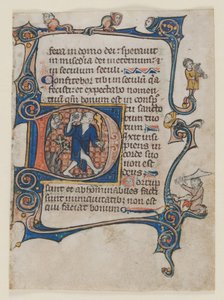 fera in domo dei: speravit
in misc̄dia dei in eternum: ⁊
in seculum seculi.
Confitebor tibi in seculū quia
fecisti: et expectabo nomen
tuū qm̄ bonum est in conspc̄
tu sancto
rum tuo
rum
ixit in
sipiens
in corde
suo non
est deus
Corrup
ti sunt et abhominabiles facti
sunt in iniquitatibȝ non est
qui faciat bonum